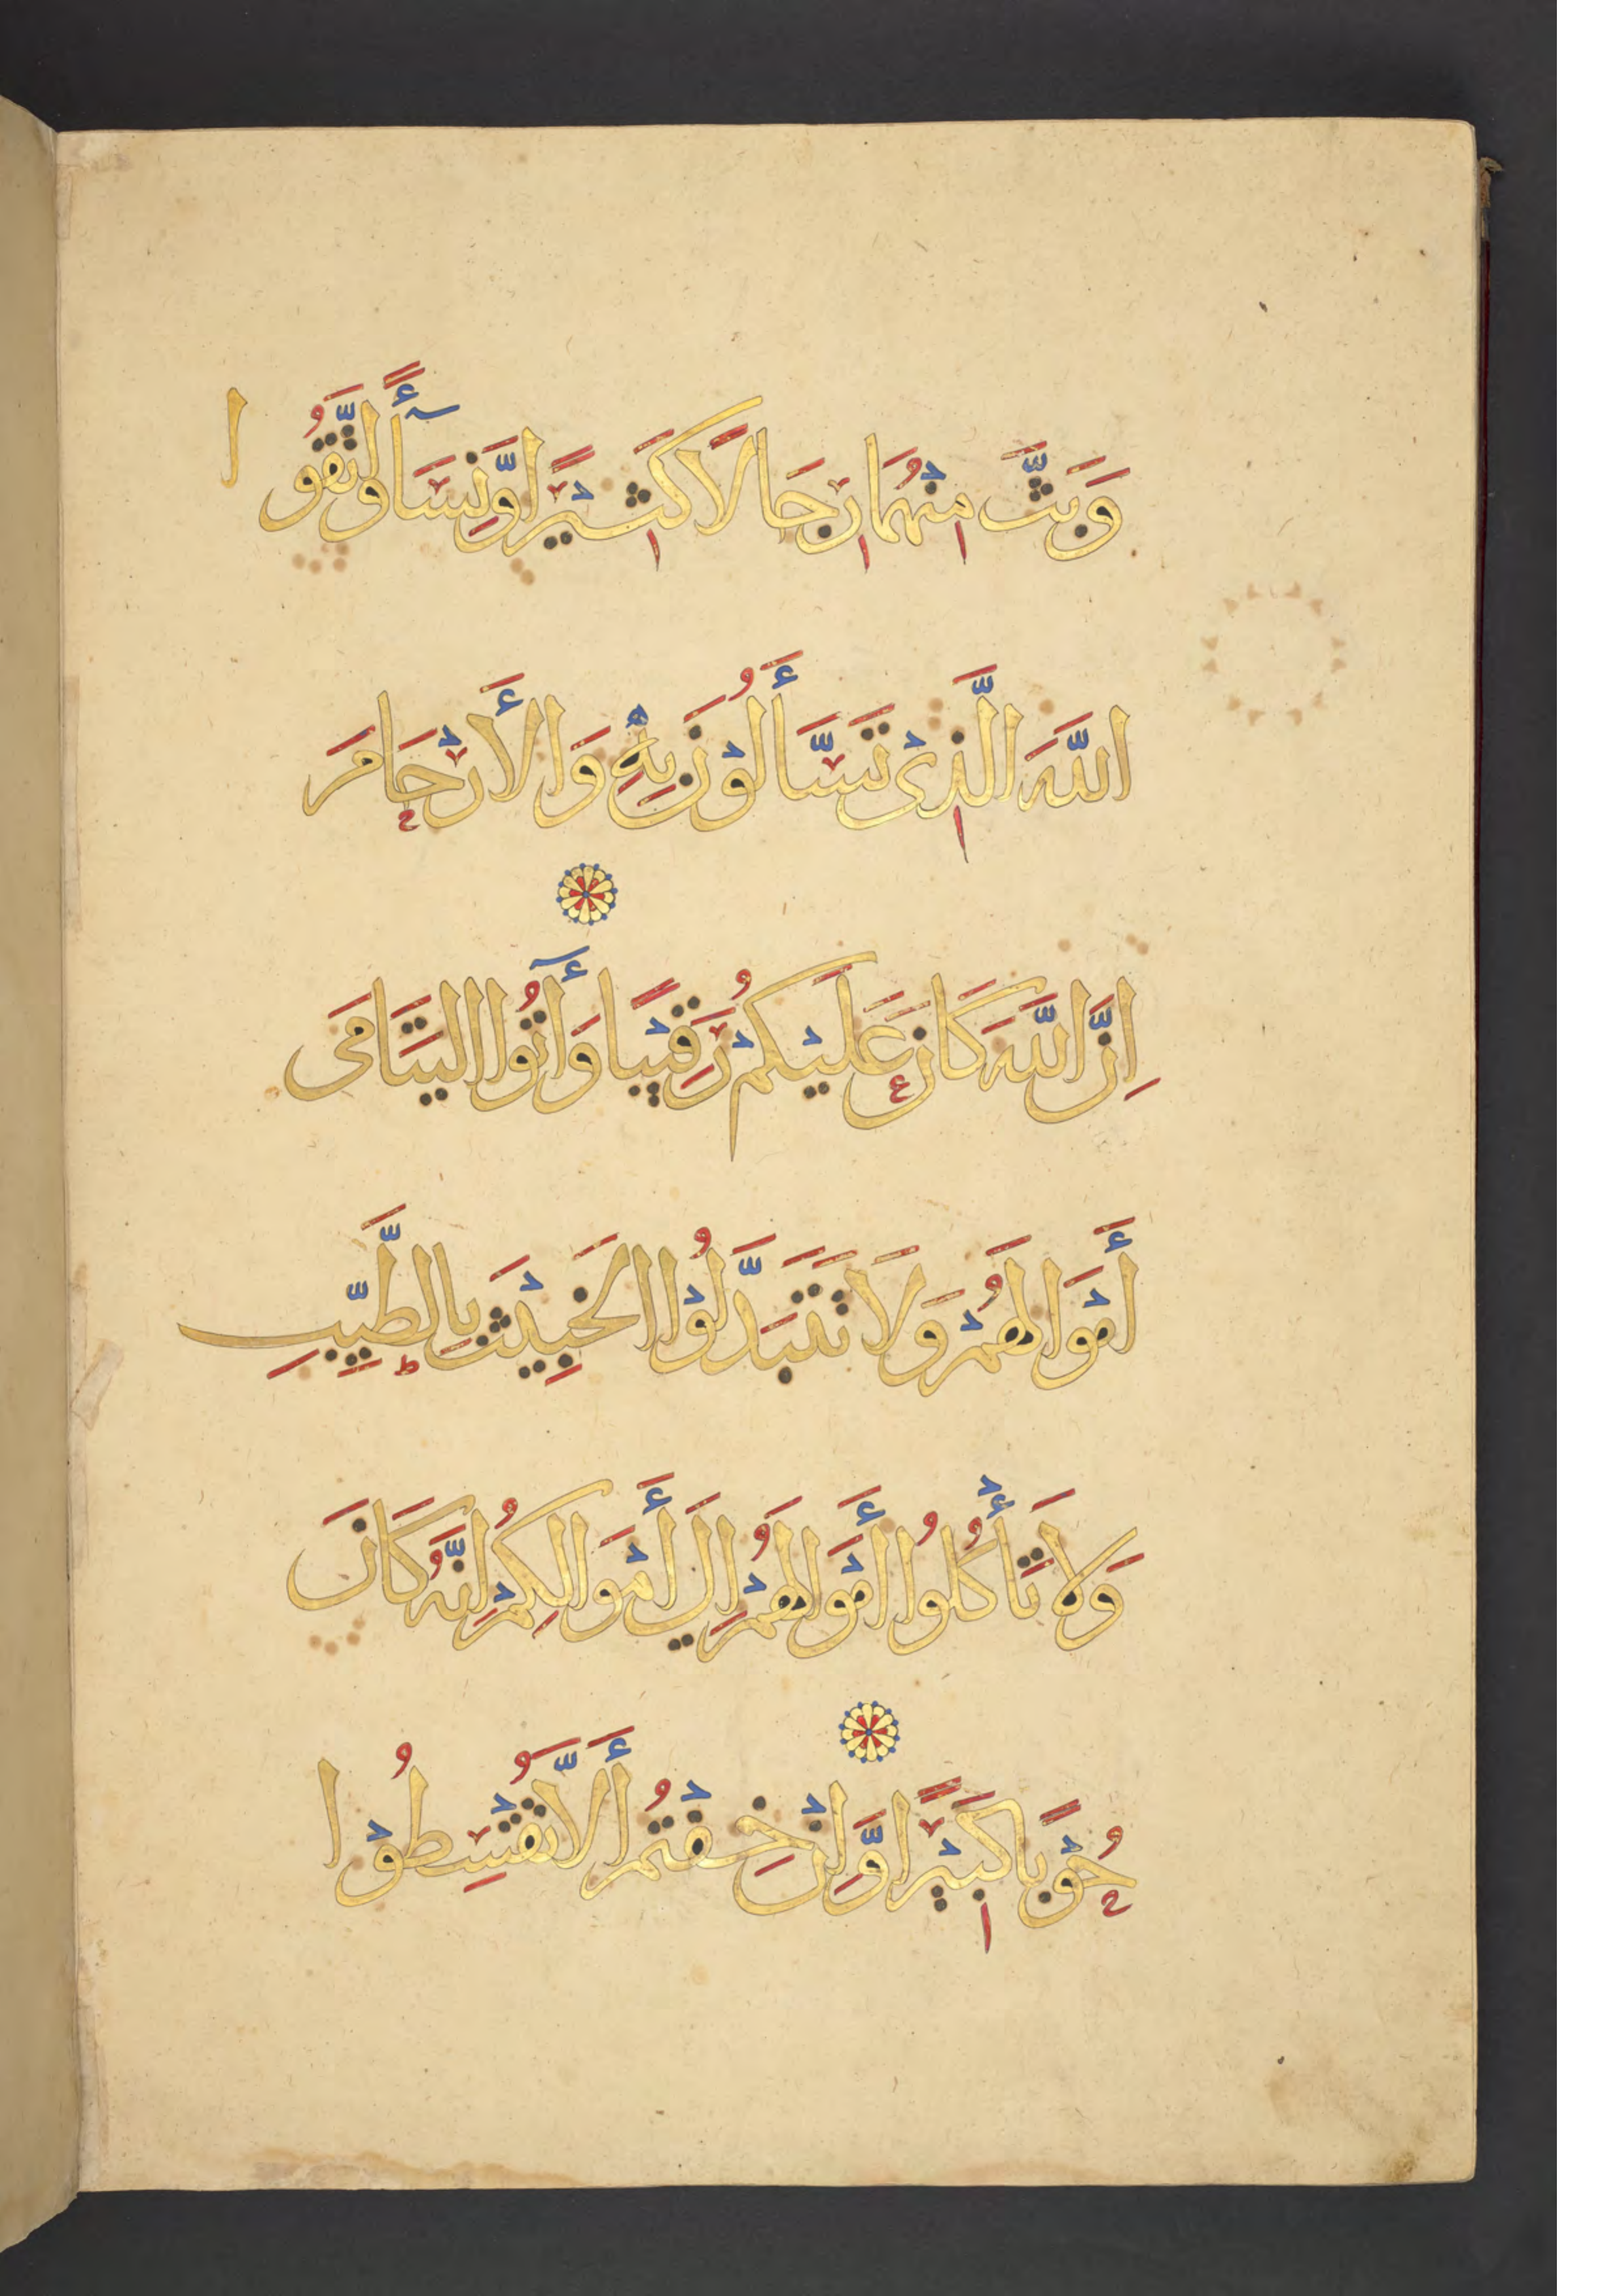 وَبَثَّ مِنْهُمَا رِجَالًا كَثِيْرًا وَّنِسَآءً وَاتَّقُوا
اللَّهَ الَّذِىْ تَسَّآءَلُوْنَ بِهٖ وَالْأَرْحَامَ
اِنَّ اللَّهَ كَانَ عَلَيْكُمْ رَقِيْبًا وَأٓتُوا اليَتَامَى
أَمْوَالَهُمْ وَلَا تَتَبَدَّلُوْا الخَبِيْثَ بِالطَّيِّبِ
وَلَا تَأْكُلُوا أَمْوَالَهُمْ اِلَى أَمْوَالِكُمْ اِنَّهُ كَانَ
حُوْبًا كَبِيْرًا وَّاِنْ خِفْتُمْ أَلَّا تُقْسِطُوْا